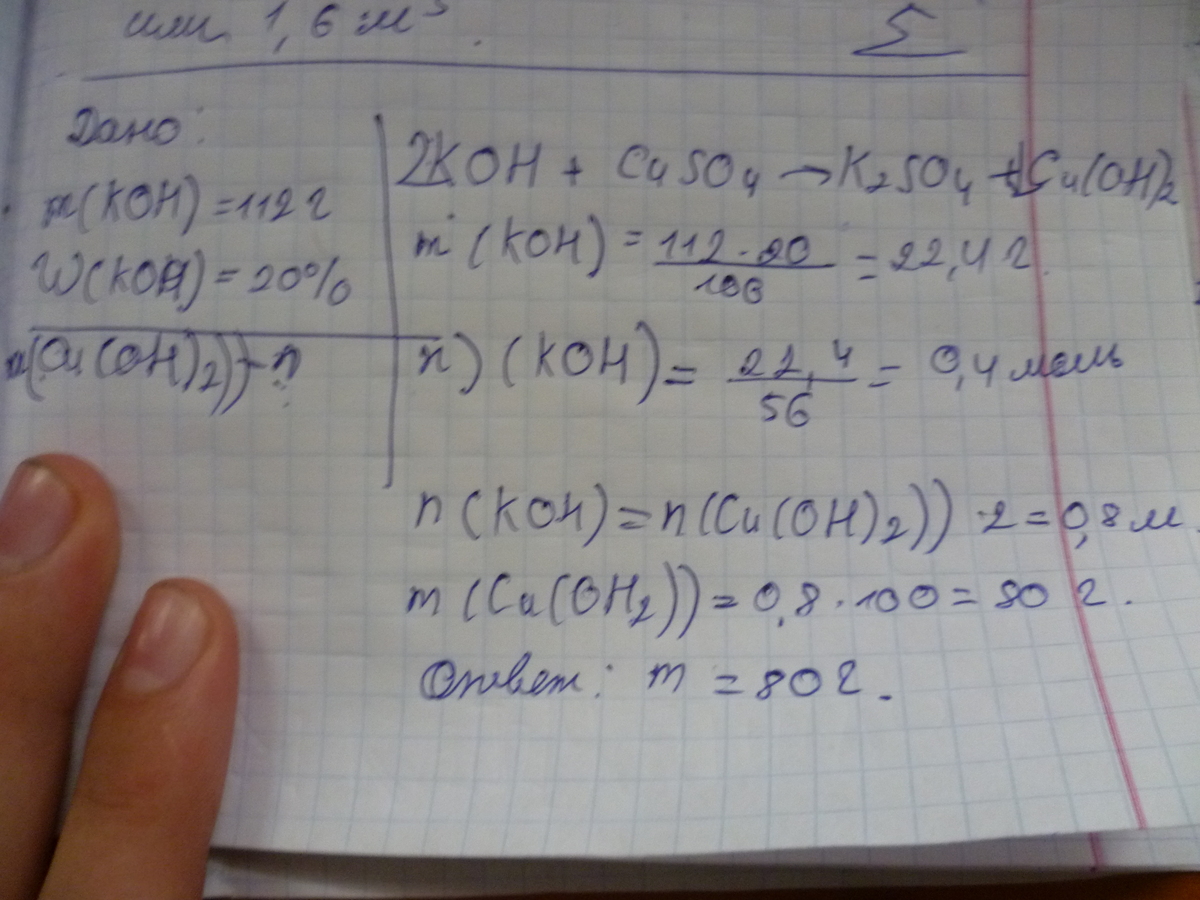 или 1,6 м³.
5
Дано:
m(KOH) = 112 г
W(KOH) = 20%
m(Cu(OH)₂) - ?
2KOH + CuSO₄ → K₂SO₄ + Cu(OH)₂
m (KOH) = 112 · 20 / 100 = 22,4 г.
n) (KOH) = 22,4 / 56 = 0,4 моль
n (KOH) = n (Cu(OH)₂)) · 2 = 0,8 м
m (Cu(OH₂)) = 0,8 · 100 = 80 г.
Ответ: m = 80 г.